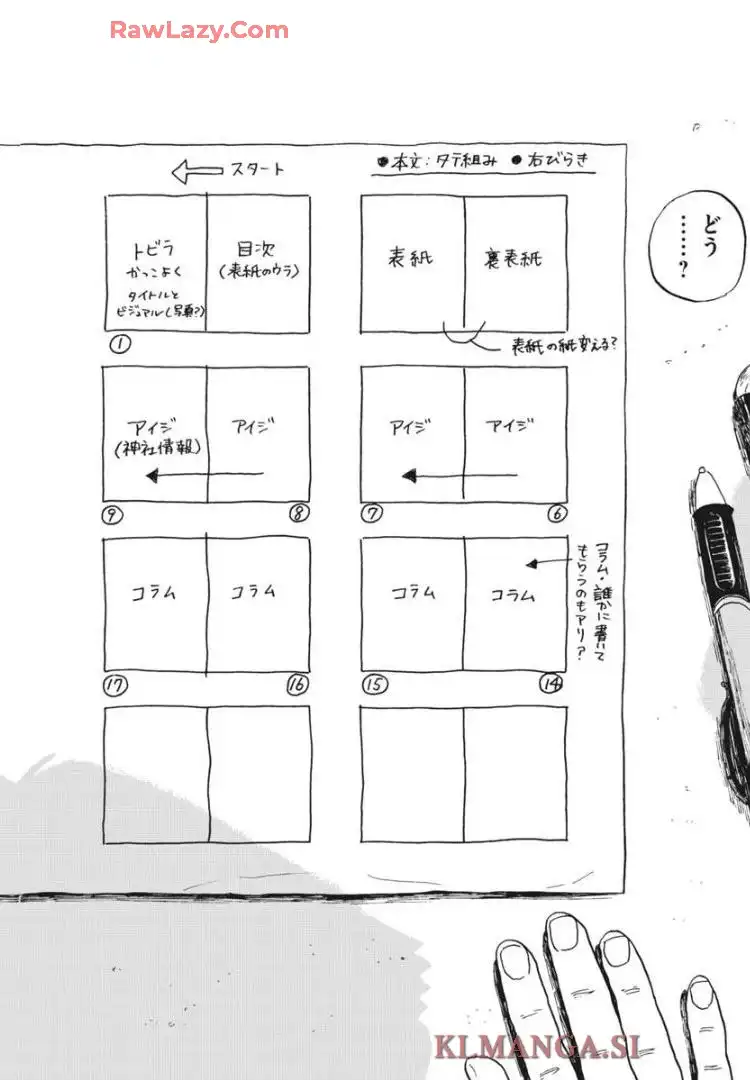 RawLazy.Com
●本文:タテ組み ●右びらき
スタート
どう
……?
裏表紙
表紙
表紙の紙変える?
目次
(表紙のウラ)
トビラ
かっこよく
タイトルと
ビジュアル(写真?)
①
アイジ
アイジ
⑥
⑦
アイジ
アイジ
(神社情報)
⑧
⑨
コラム
コラム・誰かに書いて
もらうのもアリ?
コラム
⑭
⑮
コラム
コラム
⑯
⑰
KLMANGA.SI